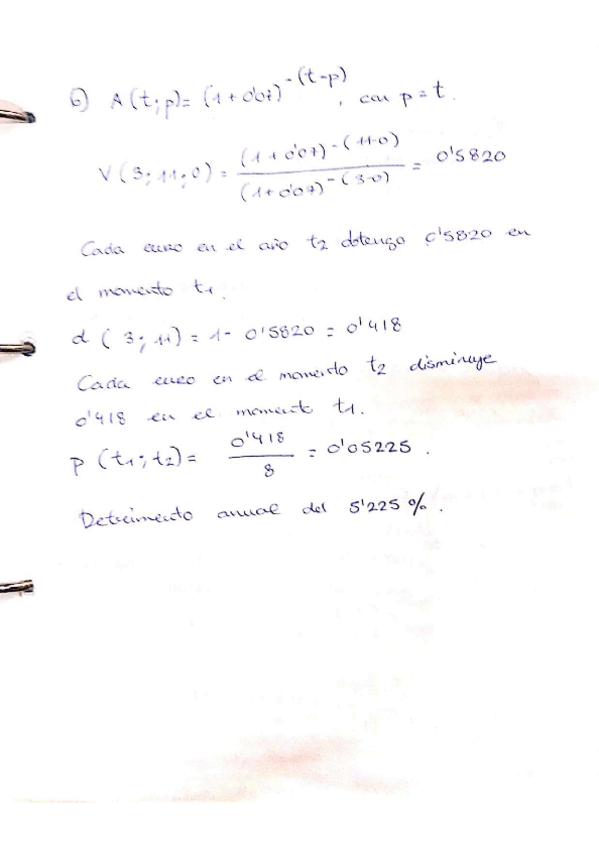 6) A(t;p)= (1+0'07)^-(t-p), con p=t.
V(3;11;0) = (1+0'07)^-(11-0) / (1+0'07)^-(3-0) = 0'5820
Cada euro en el año t2 obtengo 0'5820 en
el momento t1.
d (3; 11) = 1- 0'5820 = 0'418
Cada euro en el momento t2 disminuye
0'418 en el momento t1.
p (t1; t2) = 0'418 / 8 = 0'05225.
Detrimento anual del 5'225 %.